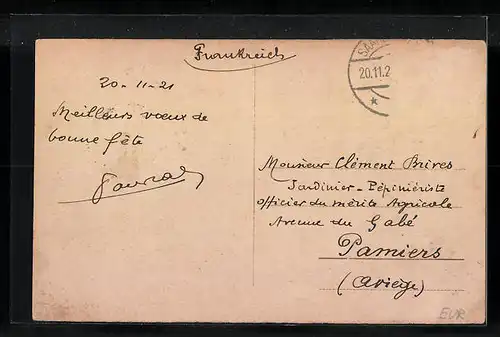 Frankreich
20-11-21
Meilleurs vœux de
bonne fête
20.11.2
Monsieur Clément Brires
Jardinier-Pépiniériste
Officier du mérite Agricole
Avenue du Gabé
Pamiers
(Ariège)
EUR